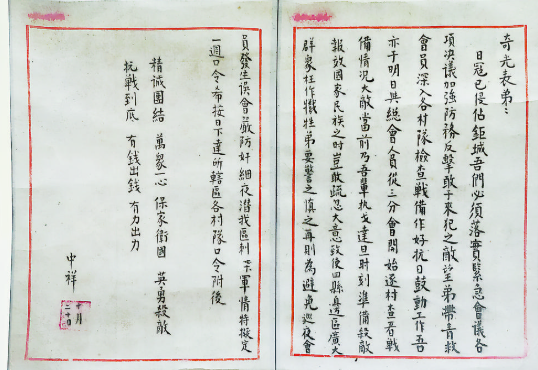 奇光表弟：
日寇已侵佔鉅城吾們必須落實緊急會議各
項決議加強防務反擊敢于來犯之敵望弟帶青救
會員深入各村隊檢查戰備作好抗日鼓動工作吾
亦于明日與總會人員從三分會開始逐村查看戰
備情況大敵當前乃吾輩执戈達旦时刻準備殺敵
報放國家民族之时豈敢疏忽大意致使四縣邊區廣大
群众枉作犧牲弟要警之慎之再則為避免巡夜會
員發生误會嚴防奸細夜潛我區刺探軍情特擬定
一週口令希按日下達所轄區各村隊口令附後
精诚團結 萬眾一心 保家衛國 英勇殺敵
抗戰到底 有钱出钱 有力出力
中祥
十月
二十日